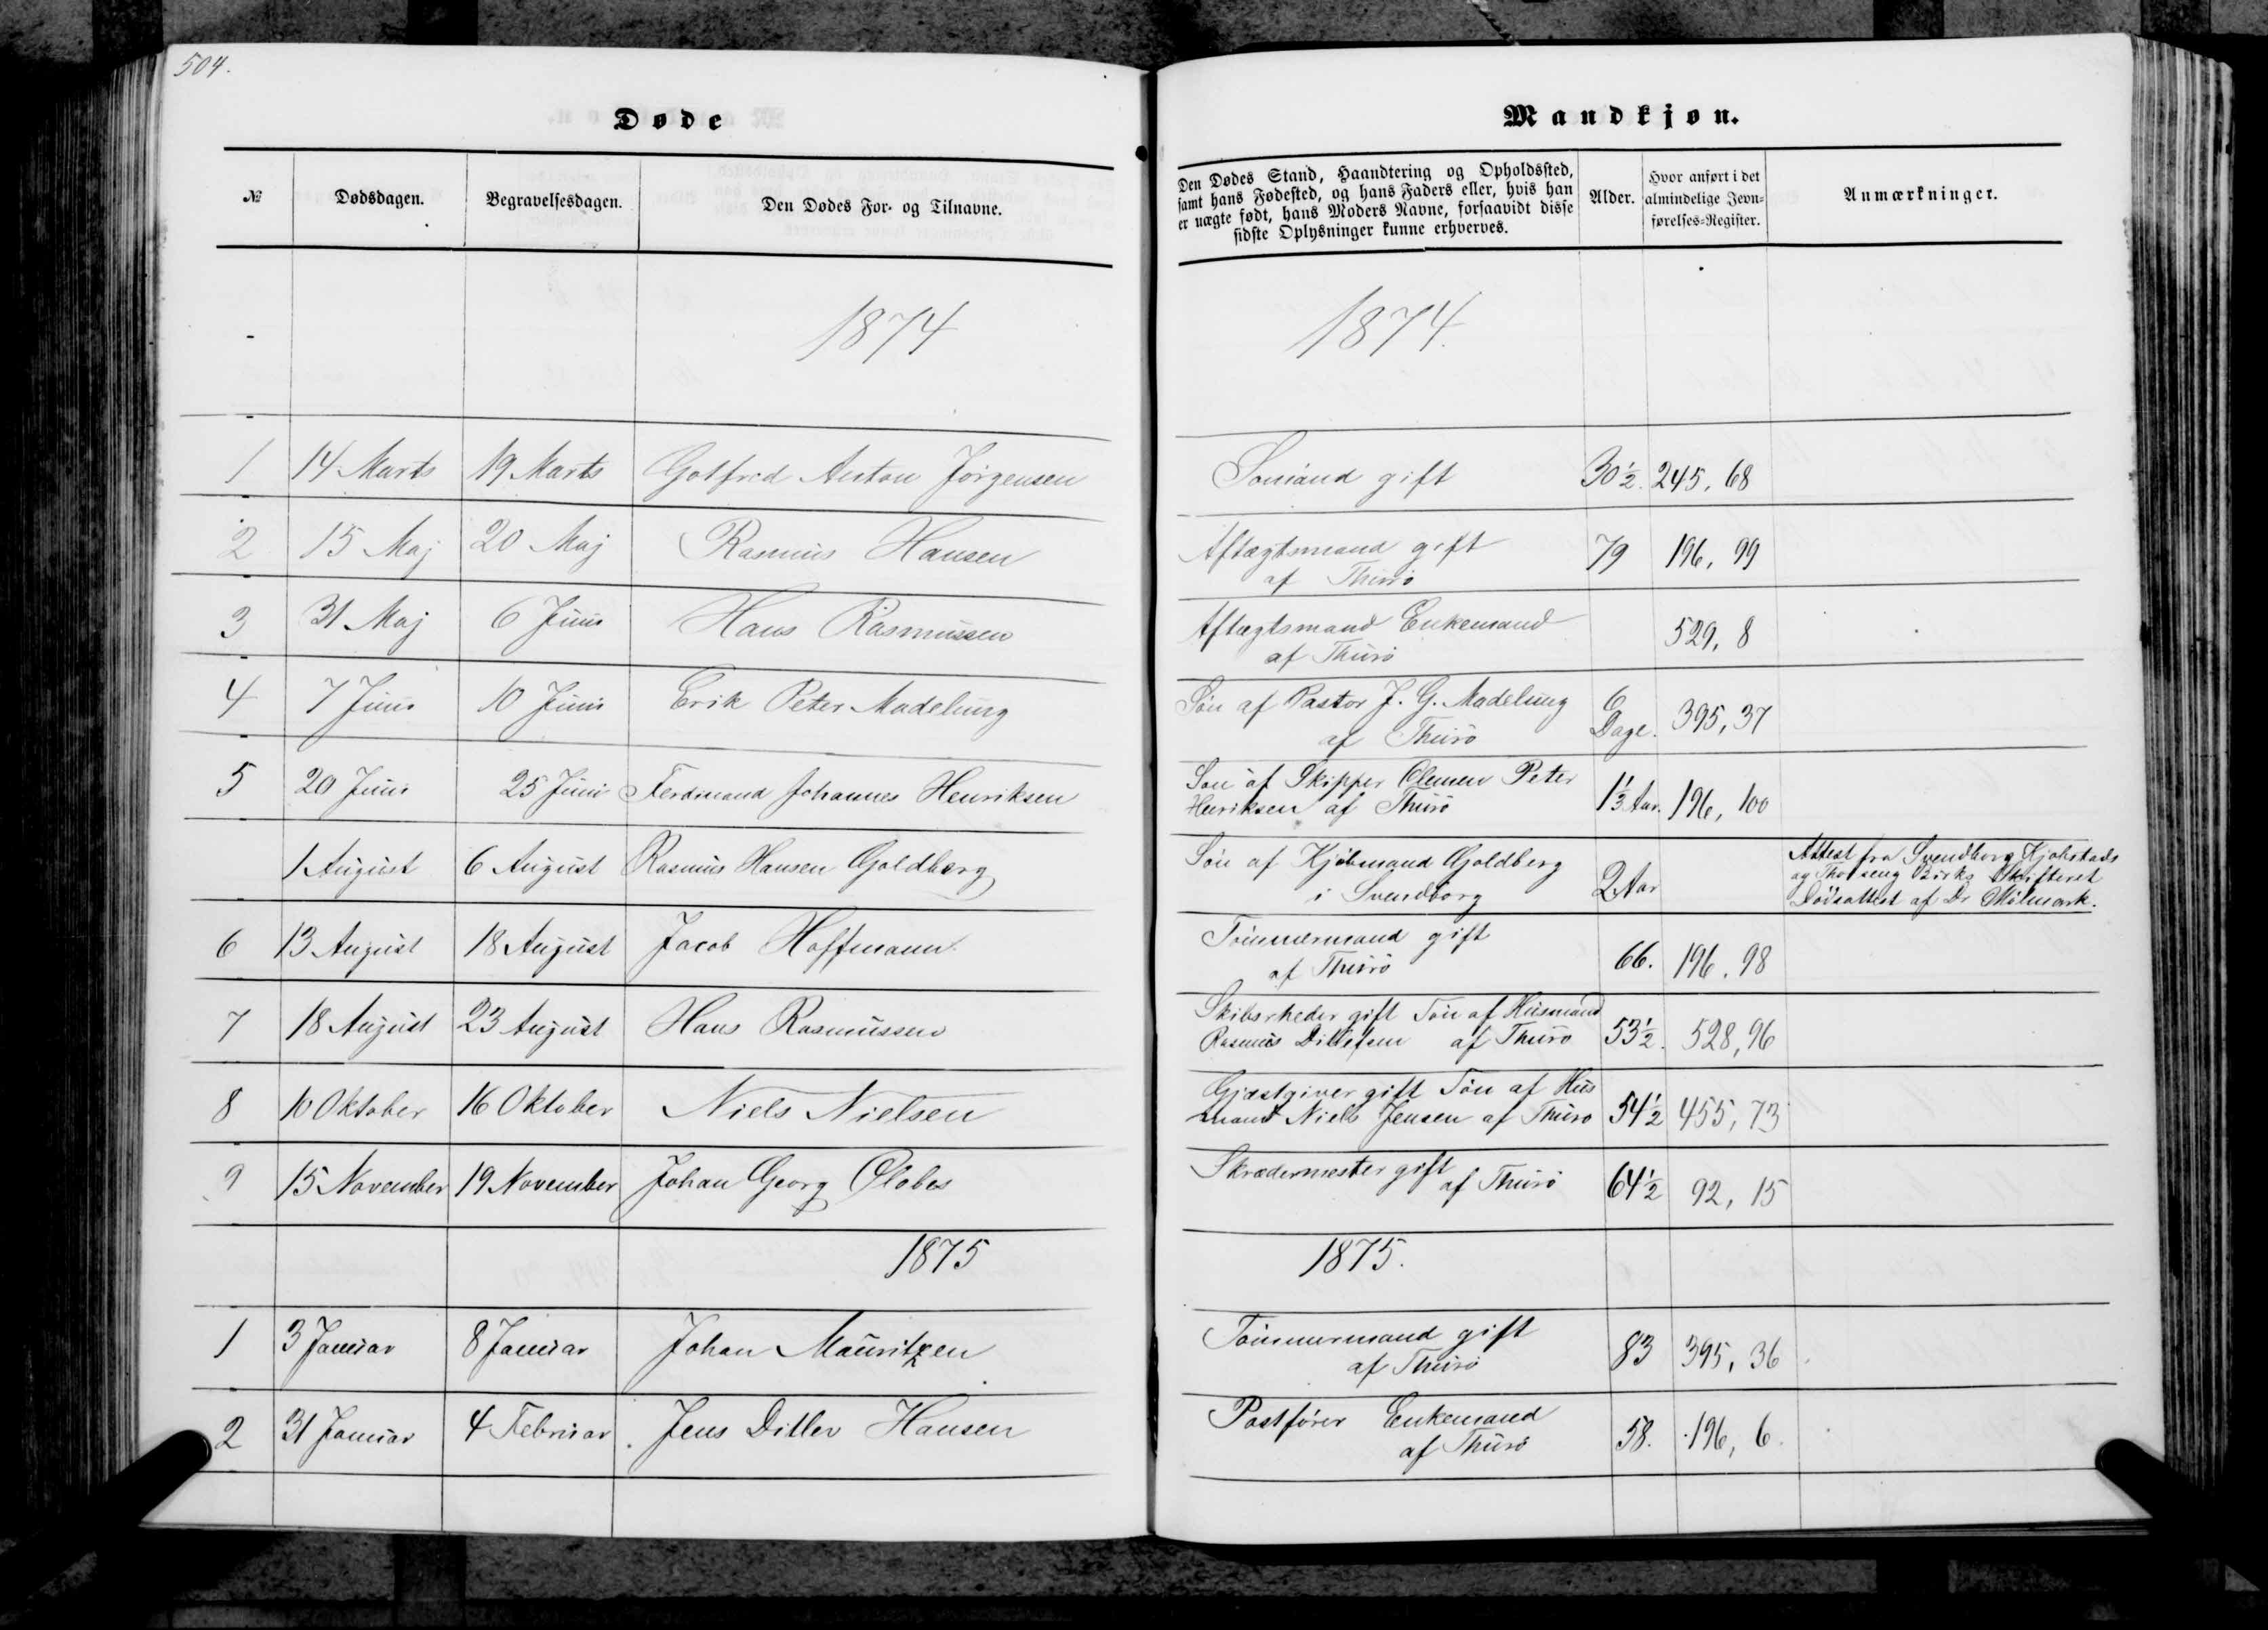 504.
Døde
Mandkjøn.
№ Dødsdagen. Begravelsesdagen. Den Dødes For- og Tilnavne.
Den Dødes Stand, Haandtering og Opholdssted,
samt hans Fødested, og hans Faders eller, hvis han
er uægte født, hans Moders Navne, forsaavidt disse
sidste Oplysninger kunne erhverves.
Alder.
Hvor anført i det
almindelige Jevn-
førelses-Register.
Anmærkninger.
1874 1874.
1 14 Marts 19 Marts Gotfred Anton Jørgensen Sømand gift 30½. 245, 68
2 15 Maj 20 Maj Rasmus Hansen Aftægtsmand gift 79 196, 99
af Thurø
3 31 Maj 6 Juni Hans Rasmussen Aftægtsmand Enkemand 529, 8
af Thurø
4 7 Juni 10 Juni Erik Peter Madelung Søn af Pastor J. G. Madelung 6 395, 37
af Thurø Dage.
5 20 Juni 25 Juni Ferdinand Johannes Henriksen Søn af Skipper Clemen Peter
Henriksen af Thurø 1⅓ Aar. 196, 100
1 August 6 August Rasmus Hansen Goldberg Søn af Kjøbmand Goldberg 2 Aar
i Svendborg
Attest fra Svendborg Kjøbstads
og Thorseng Birks Skifteret
Dødsattest af Dr
6 13 August 18 August Jacob Hoffmann Tømmermand gift 66. 196. 98
af Thurø
7 18 August 23 August Hans Rasmussen Skibsrheder gift Søn af Husmand
Rasmus Ditlefsen af Thurø 53½. 528, 96
8 10 Oktober 16 Oktober Niels Nielsen Gjæstgiver gift Søn af Hus
mand Niels Jensen af Thurø 54½ 455, 73
9 15 November 19 November Johan Georg Clobes Skrædermester gift 64½ 92, 15
af Thurø
1875 1875.
1 3 Januar 8 Januar Johan Mauritzen Tømmermand gift 83 395, 36
af Thurø
2 31 Januar 4 Februar Jens Ditlev Hansen Postfører Enkemand 58. 196, 6.
af Thurø